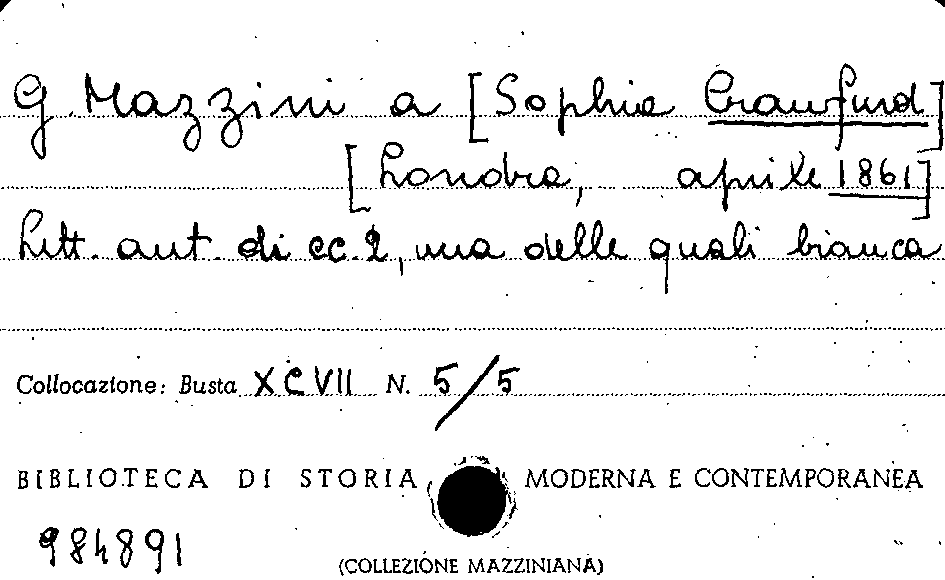 G. Mazzini a [Sophie Craufurd]
[Londra, aprile 1861]
Lett. aut. di cc. 2, una delle quali bianca
Collocazione: Busta XCVII N. 5/5
BIBLIOTECA DI STORIA MODERNA E CONTEMPORANEA
984891
(COLLEZIONE MAZZINIANA)